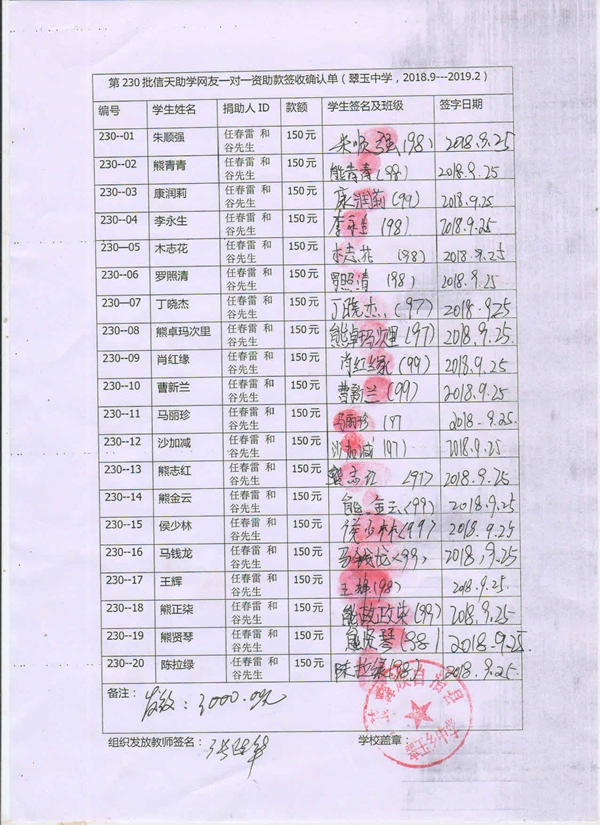 第230批信天助学网友一对一资助款签收确认单（翠玉中学，2018.9---2019.2）
编号 学生姓名 捐助人ID 款额 学生签名及班级 签字日期
230--01 朱顺强 任春雷 和谷先生 150元 朱顺强(98) 2018.9.25
230--02 熊青青 任春雷 和谷先生 150元 熊青青(98) 2018.9.25
230--03 康润莉 任春雷 和谷先生 150元 康润莉(99) 2018.9.25
230--04 李永生 任春雷 和谷先生 150元 李永生(98) 2018.9.25
230—05 木志花 任春雷 和谷先生 150元 木志花 (98) 2018.9.25
230--06 罗照清 任春雷 和谷先生 150元 罗照清 (98) 2018.9.25
230—07 丁晓杰 任春雷 和谷先生 150元 丁晓杰(97) 2018.9.25
230--08 熊卓玛次里 任春雷 和谷先生 150元 熊卓玛次里(97) 2018.9.25
230--09 肖红缘 任春雷 和谷先生 150元 肖红缘(99) 2018.9.25
230--10 曹新兰 任春雷 和谷先生 150元 曹新兰(99) 2018.9.25
230--11 马丽珍 任春雷 和谷先生 150元 马丽珍 2018.9.25
230--12 沙加减 任春雷 和谷先生 150元 沙加减(97) 2018.9.25
230--13 熊志红 任春雷 和谷先生 150元 熊志红 (97) 2018.9.25
230--14 熊金云 任春雷 和谷先生 150元 熊金云(99) 2018.9.25
230--15 侯少林 任春雷 和谷先生 150元 侯少林(99) 2018.9.25
230--16 马钱龙 任春雷 和谷先生 150元 马钱龙(99) 2018.9.25
230--17 王辉 任春雷 和谷先生 150元 王辉(98) 2018.9.25
230--18 熊正柒 任春雷 和谷先生 150元 (99) 2018.9.25
230--19 熊贤琴 任春雷 和谷先生 150元 熊贤琴(98) 2018.9.25
230--20 陈拉绿 任春雷 和谷先生 150元 陈拉绿(98) 2018.9.25
备注：
3000.0
组织发放教师签名： 学校盖章：